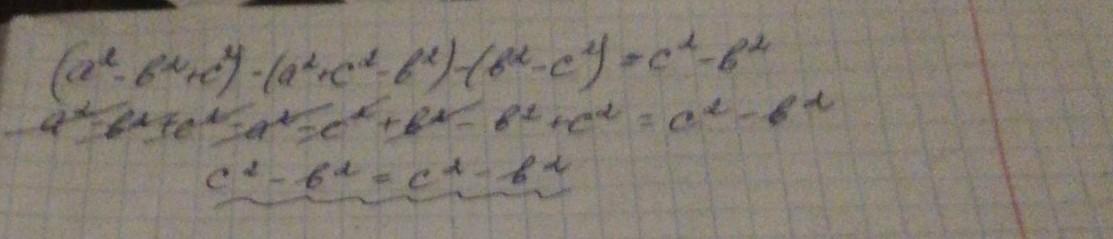 (a² - b² + c²) - (a² + c² - b²) - (b² - c²) = c² - b²
a² - b² + c² - a² - c² + b² - b² + c² = c² - b²
c² - b² = c² - b²